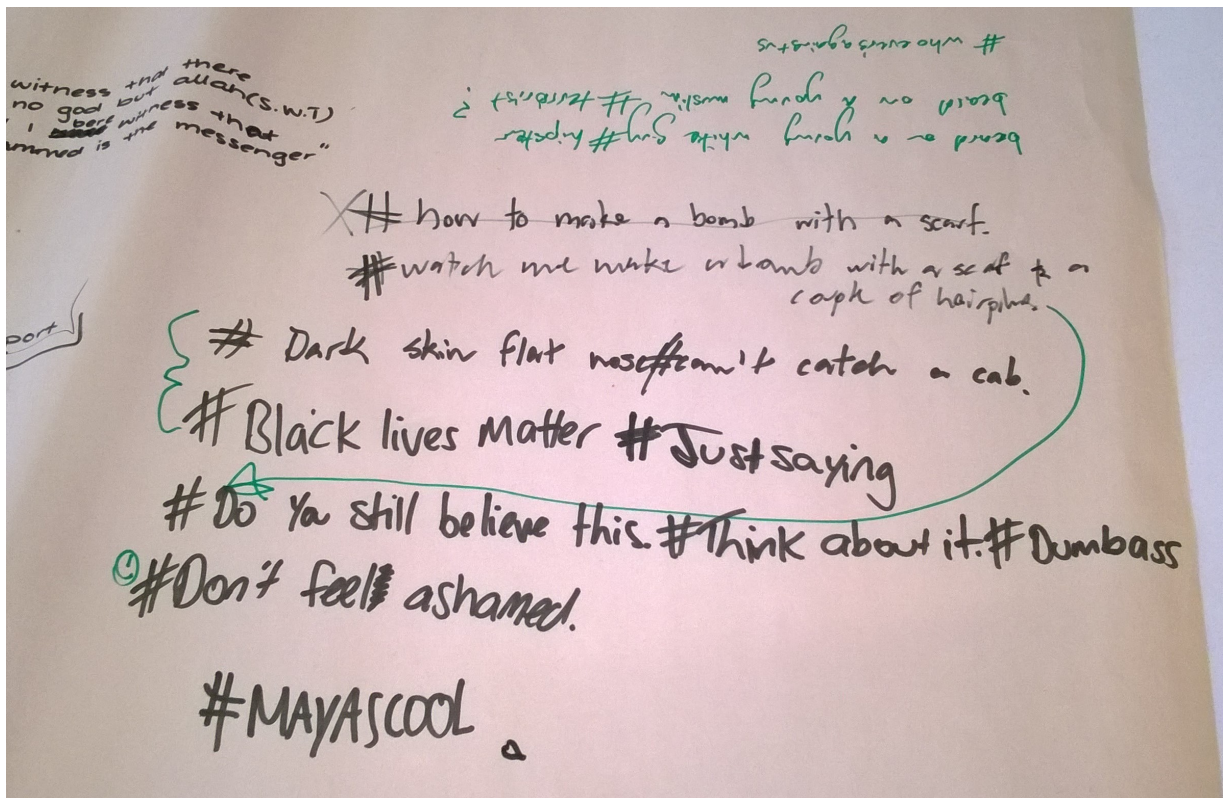 witness that there
no god but allah(S.W.T)
I bere witness that
mmed is the messenger"
# who evers against us
beard on a young muslim # terrorist ?
beard on a young white guy # hipster
# how to make a bomb with a scarf.
# watch me make a bomb with a scaf & a
couple of hairpins.
port
# Dark skin flat nose # can't catch a cab.
# Black lives Matter # Just saying
# Do You still believe this. # Think about it. # Dumbass
# Don't feel ashamed.
# MAYASCOOL